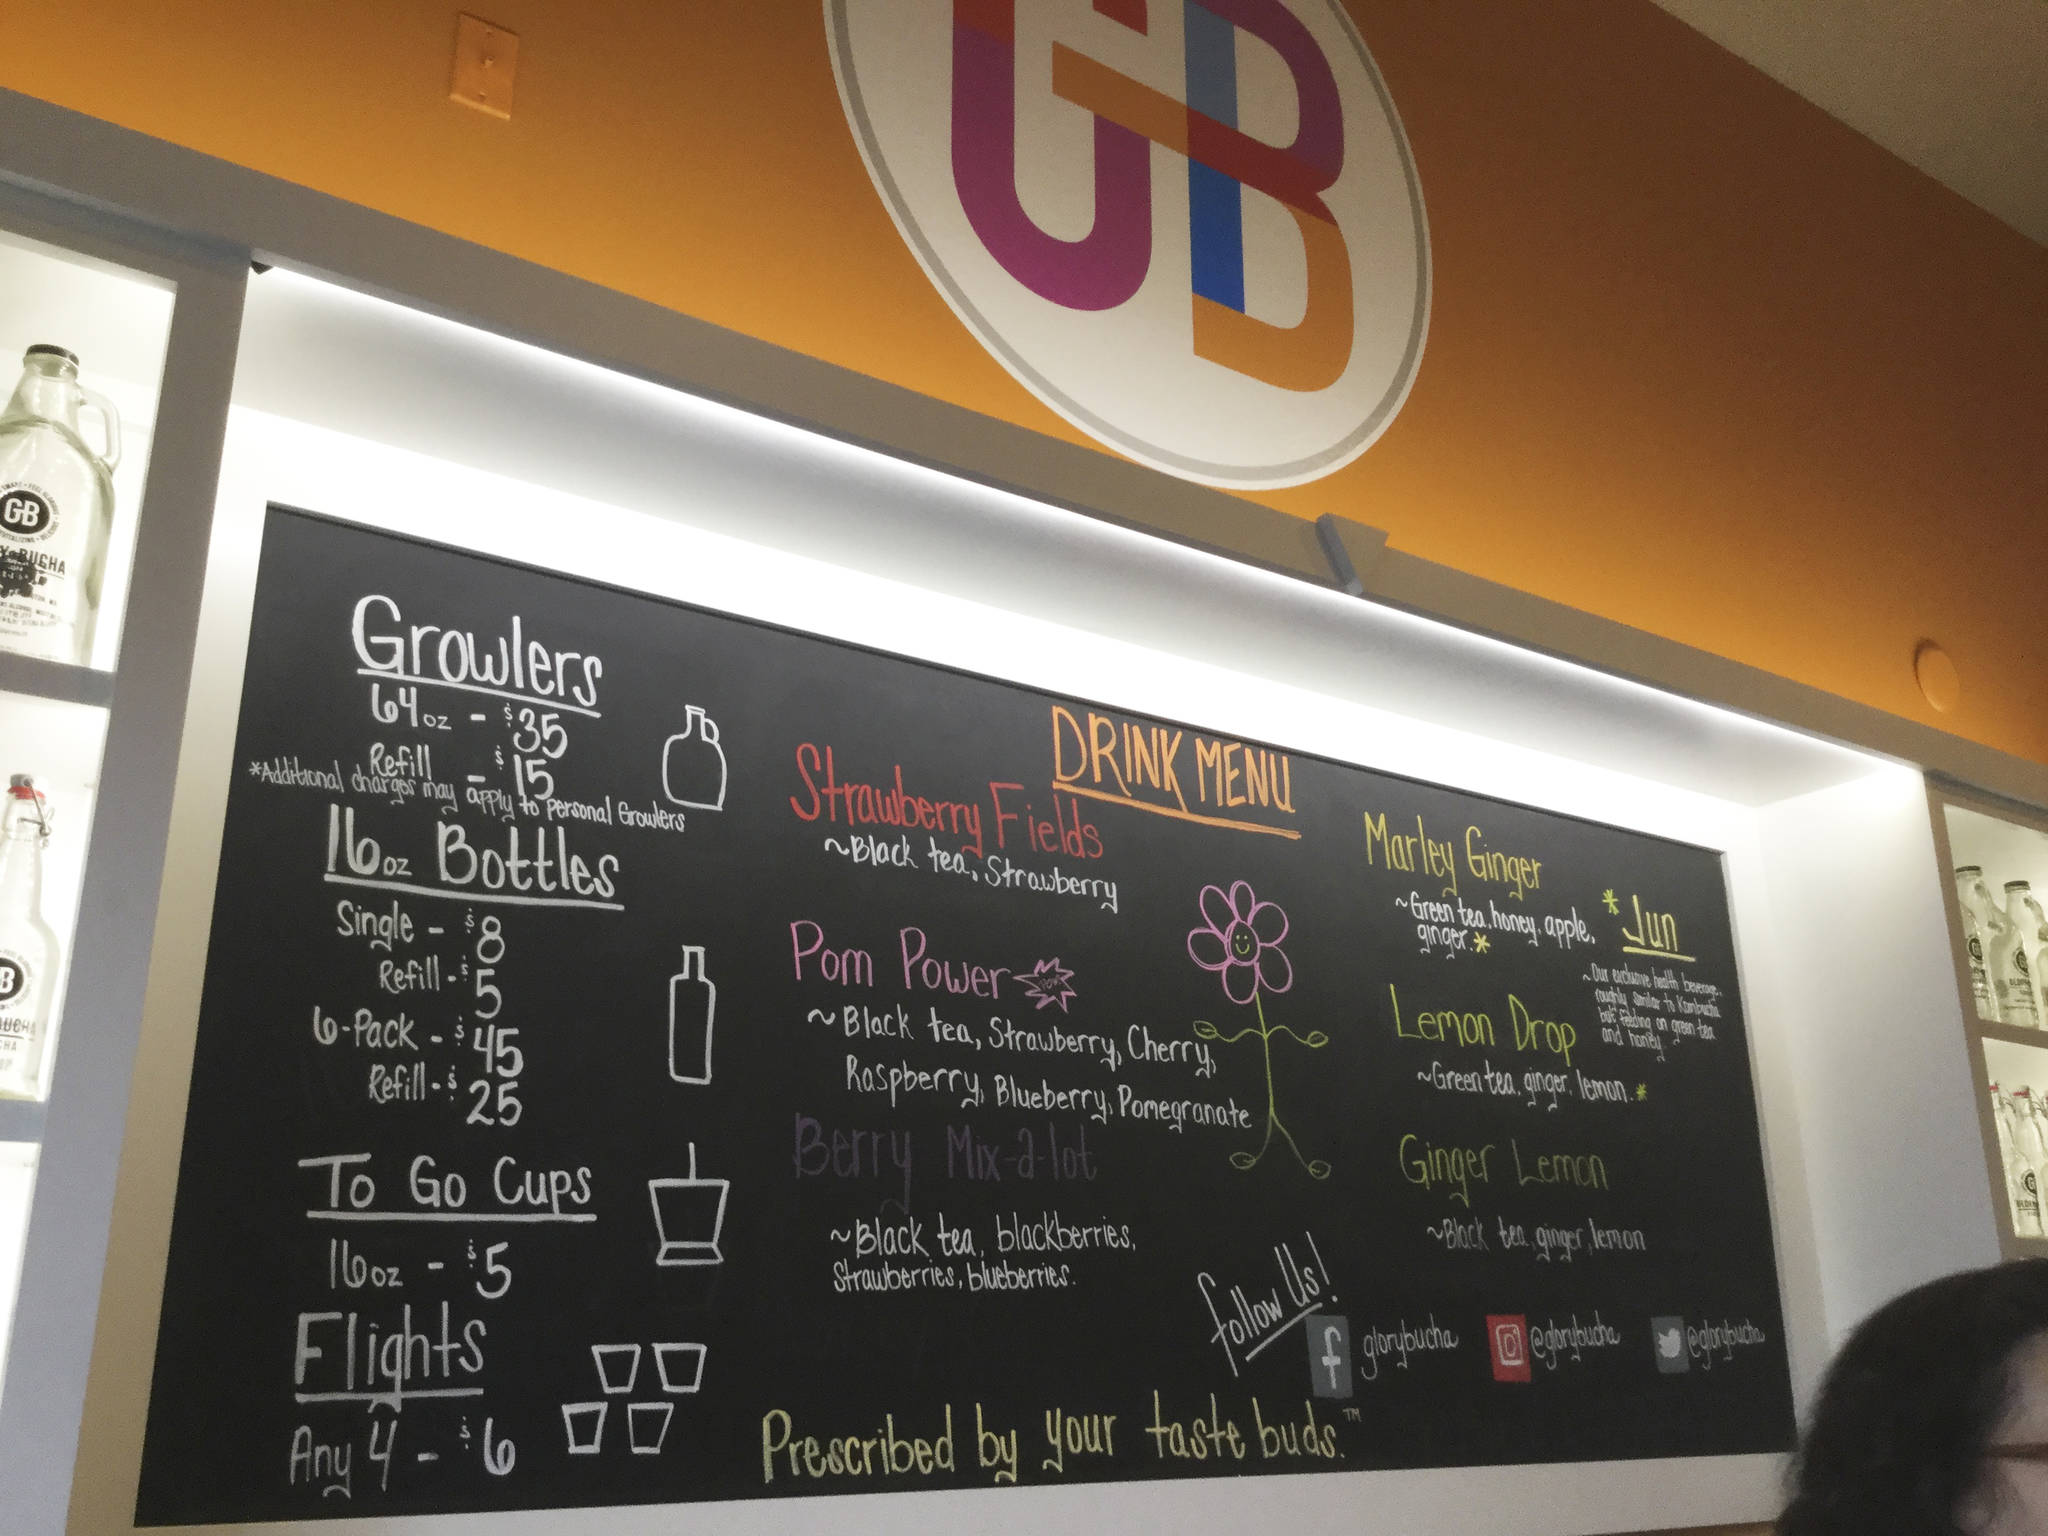 GB
Growlers
64oz - $35
Refill - $15
*Additional charges may apply to personal Growlers
16oz Bottles
Single - $8
Refill - $5
6-Pack - $45
Refill - $25
To Go Cups
16oz - $5
Flights
Any 4 - $6
DRINK MENU
Strawberry Fields
~Black tea, Strawberry
Pom Power
POW!
~Black tea, Strawberry, Cherry,
Raspberry, Blueberry, Pomegranate
Berry Mix-a-lot
~Black tea, blackberries,
Strawberries, blueberries.
Marley Ginger
~Green tea, honey, apple,
ginger.*
Lemon Drop
~Green tea, ginger, lemon.*
Ginger Lemon
~Black tea, ginger, lemon
*Jun
~Our exclusive health beverage,
roughly similar to Kombucha
but feeding on green tea
and honey
Follow Us!
f glorybucha
@glorybucha
@glorybucha
Prescribed by your taste buds.™
GB
BUCHA
B